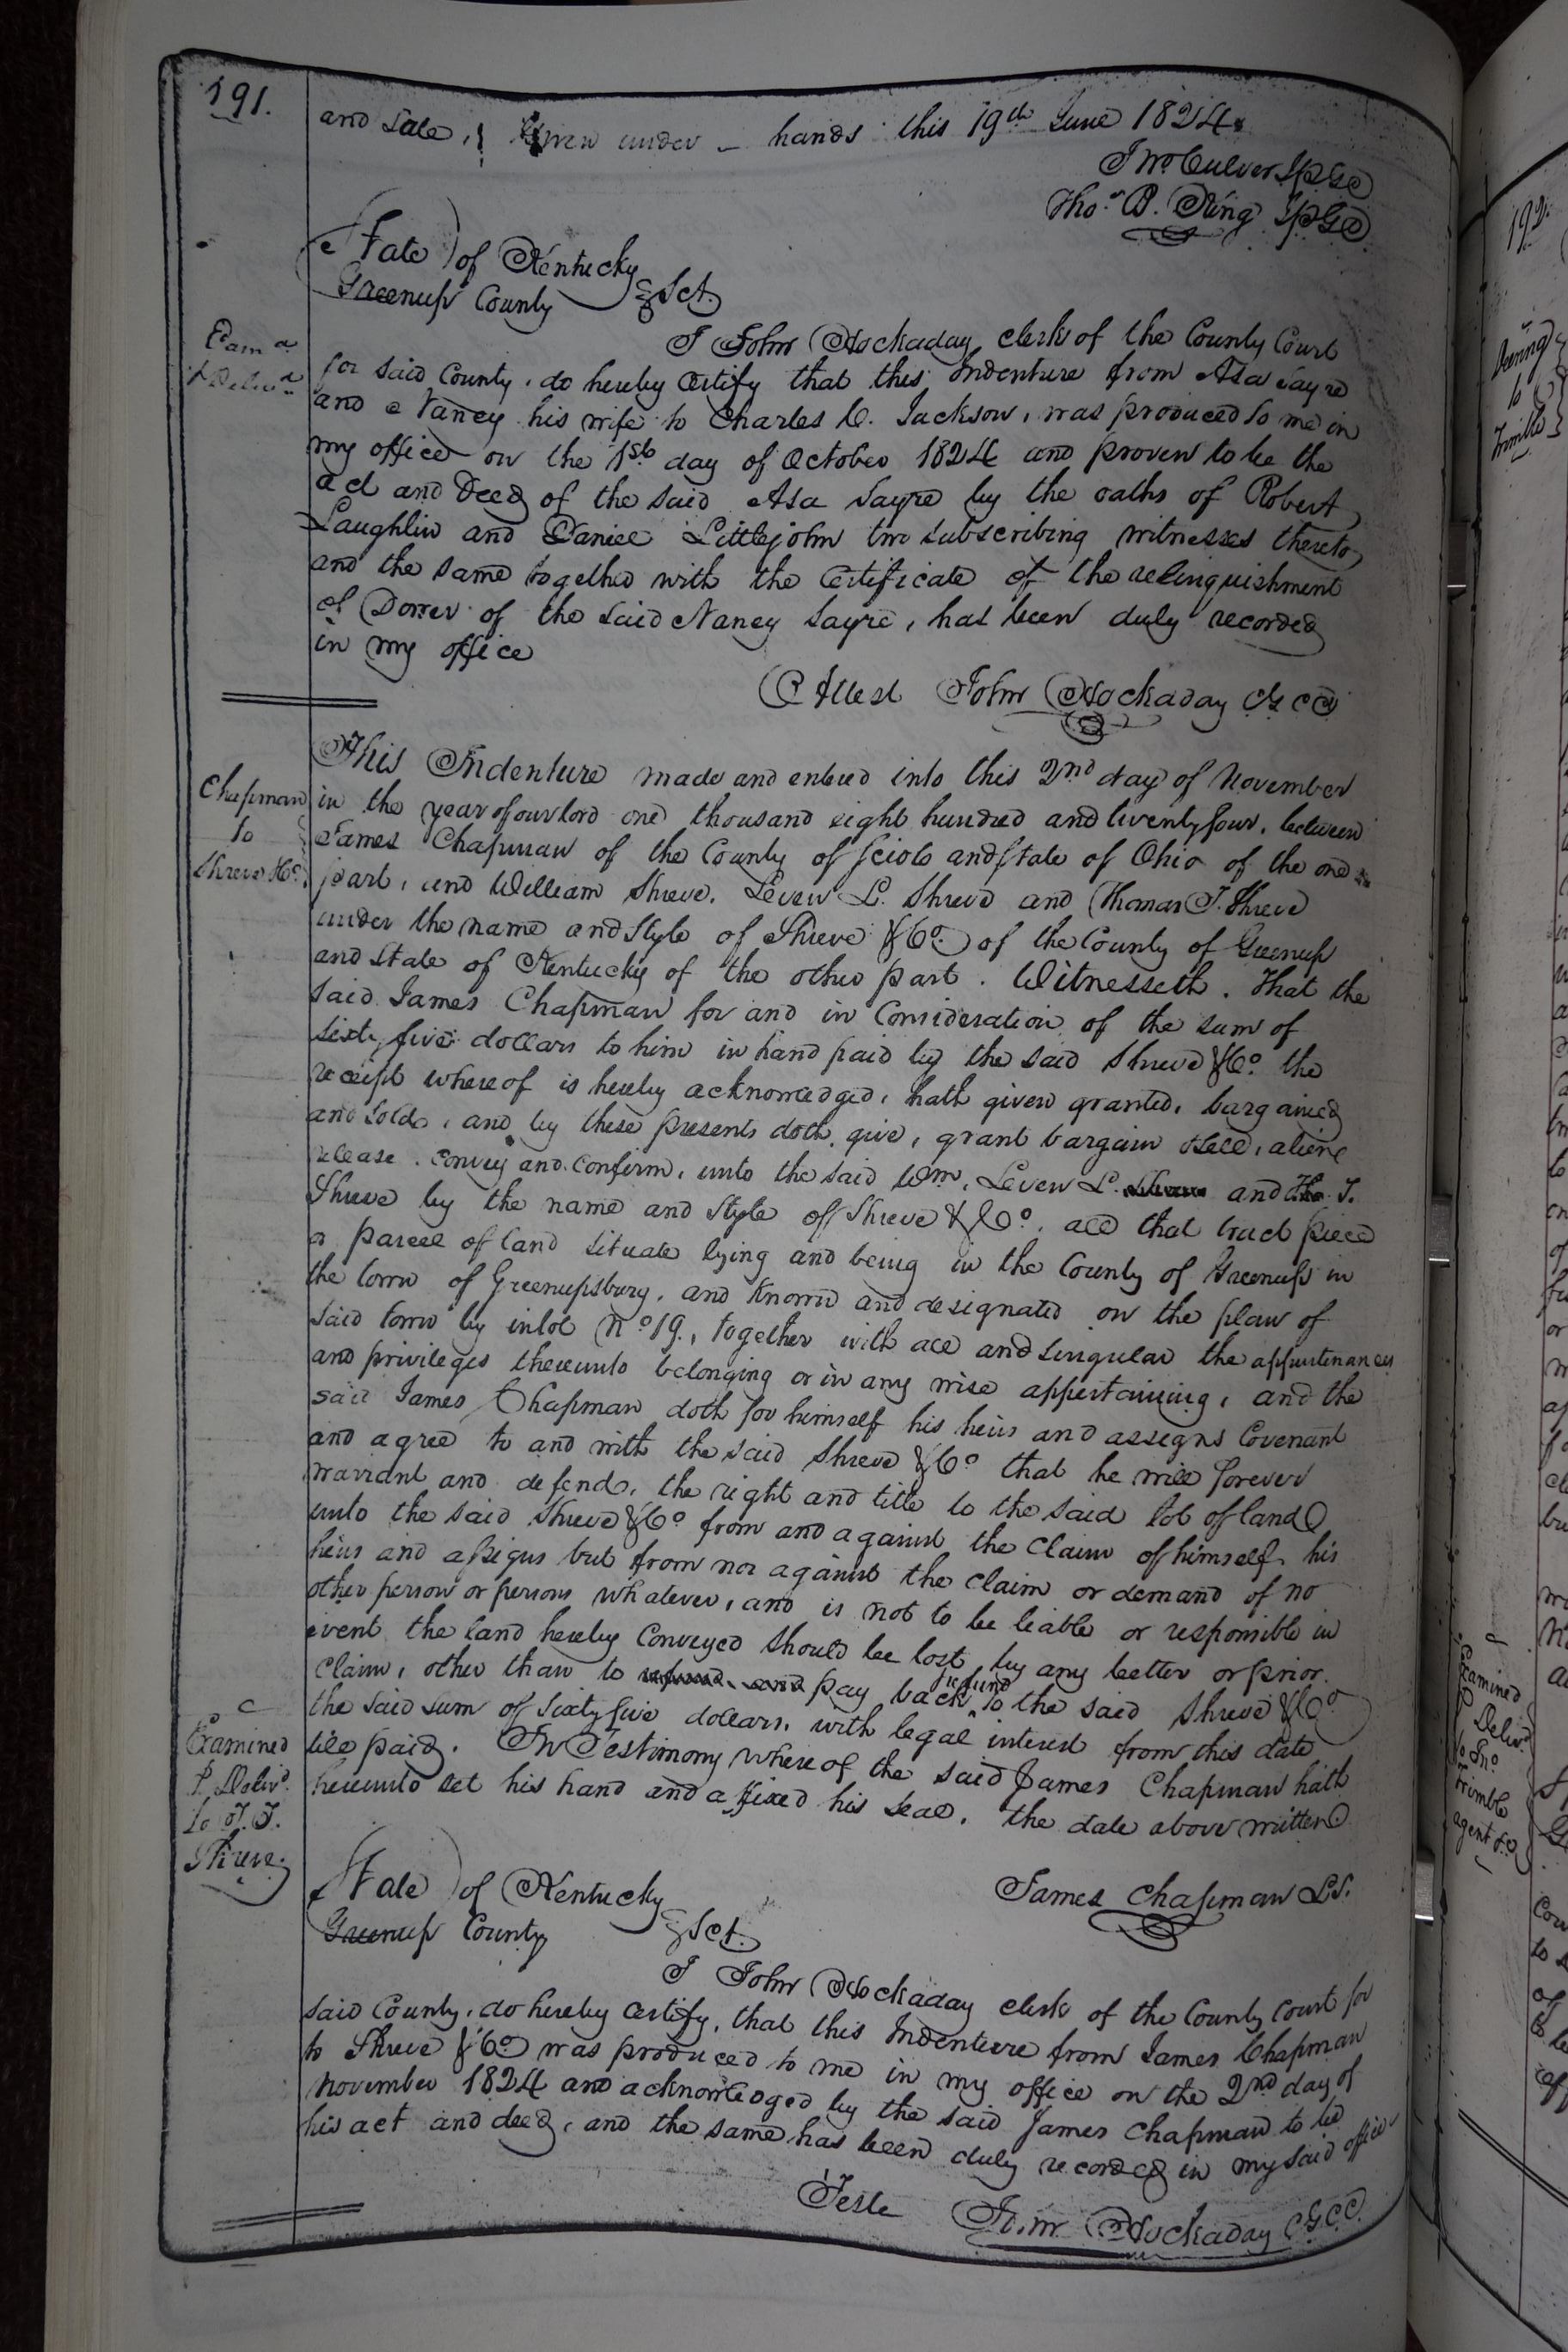 191.
and Sale, Given under hands this 19th June 1824.
Jno Culver JPGC
Thos. B. King JPGC
State of Kentucky
Greenup County Sct.
Exam d
& Deliv d
I John Hockaday clerk of the County Court
for said County, do hereby Certify that this Indenture from Asa Sayre
and Nancy his wife to Charles C. Jackson, was produced to me in
my office on the 1st day of October 1824 and proven to be the
act and Deed of the said Asa Sayre by the oaths of Robert
Laughlin and Daniel Littlejohn two subscribing witnesses thereto,
and the same together with the Certificate of the relinquishment
of Dower of the said Nancy Sayre, has been duly recorded
in my office
Attest John Hockaday C G C C
Chapman
to
Shreve & Co.
This Indenture made and entered into this 2nd day of November
in the year of our lord one thousand eight hundred and twenty four, between
James Chapman of the County of Scioto and State of Ohio of the one
part, and William Shreve, Leven L. Shreve and Thomas J. Shreve
under the name and Style of Shreve & Co. of the County of Greenup
and State of Kentucky of the other part. Witnesseth. That the
said James Chapman for and in Consideration of the sum of
sixty five dollars to him in hand paid by the said Shreve & Co. the
receipt whereof is hereby acknowledged, hath given granted, bargained
and sold, and by these presents doth give, grant bargain sell, aliene
release, convey and confirm, unto the said Wm, Leven L. Shreve and Tho. J.
Shreve by the name and Style of Shreve & Co. all that tract piece
or parcel of land situate lying and being in the County of Greenup in
the town of Greenupsburg, and known and designated on the plan of
said town by inlot No. 19, together with all and singular the appurtenances
and privileges thereunto belonging or in any wise appertaining, and the
said James Chapman doth for himself his heirs and assigns Covenant
and agree to and with the said Shreve & Co that he will forever
warrant and defend, the right and title to the said lot of land
unto the said Shreve & Co from and against the claim of himself his
heirs and assigns but from nor against the claim or demand of no
other person or persons whatever, and is not to be liable or responsible in
event the land hereby Conveyed should be lost by any better or prior
claim, other than to refund and pay back refund to the said Shreve & Co
the said sum of sixty five dollars, with legal interest from this date
till paid. In Testimony whereof the said James Chapman hath
hereunto set his hand and affixed his seal, the date above written
Examined
& Delivd.
to T. J.
Shreve.
James Chapman LS.
State of Kentucky
Greenup County Sct.
I John Hockaday clerk of the County Court for
said County, do hereby Certify, that this Indenture from James Chapman
to Shreve & Co was produced to me in my office on the 2nd day of
November 1824 and acknowledged by the said James Chapman to be
his act and deed, and the same has been duly recorded in my said office
Teste John Hockaday C.G.C.C.
192.
to
Trimble
Examined
& Delivd
to Jno
Trimble
agent &c